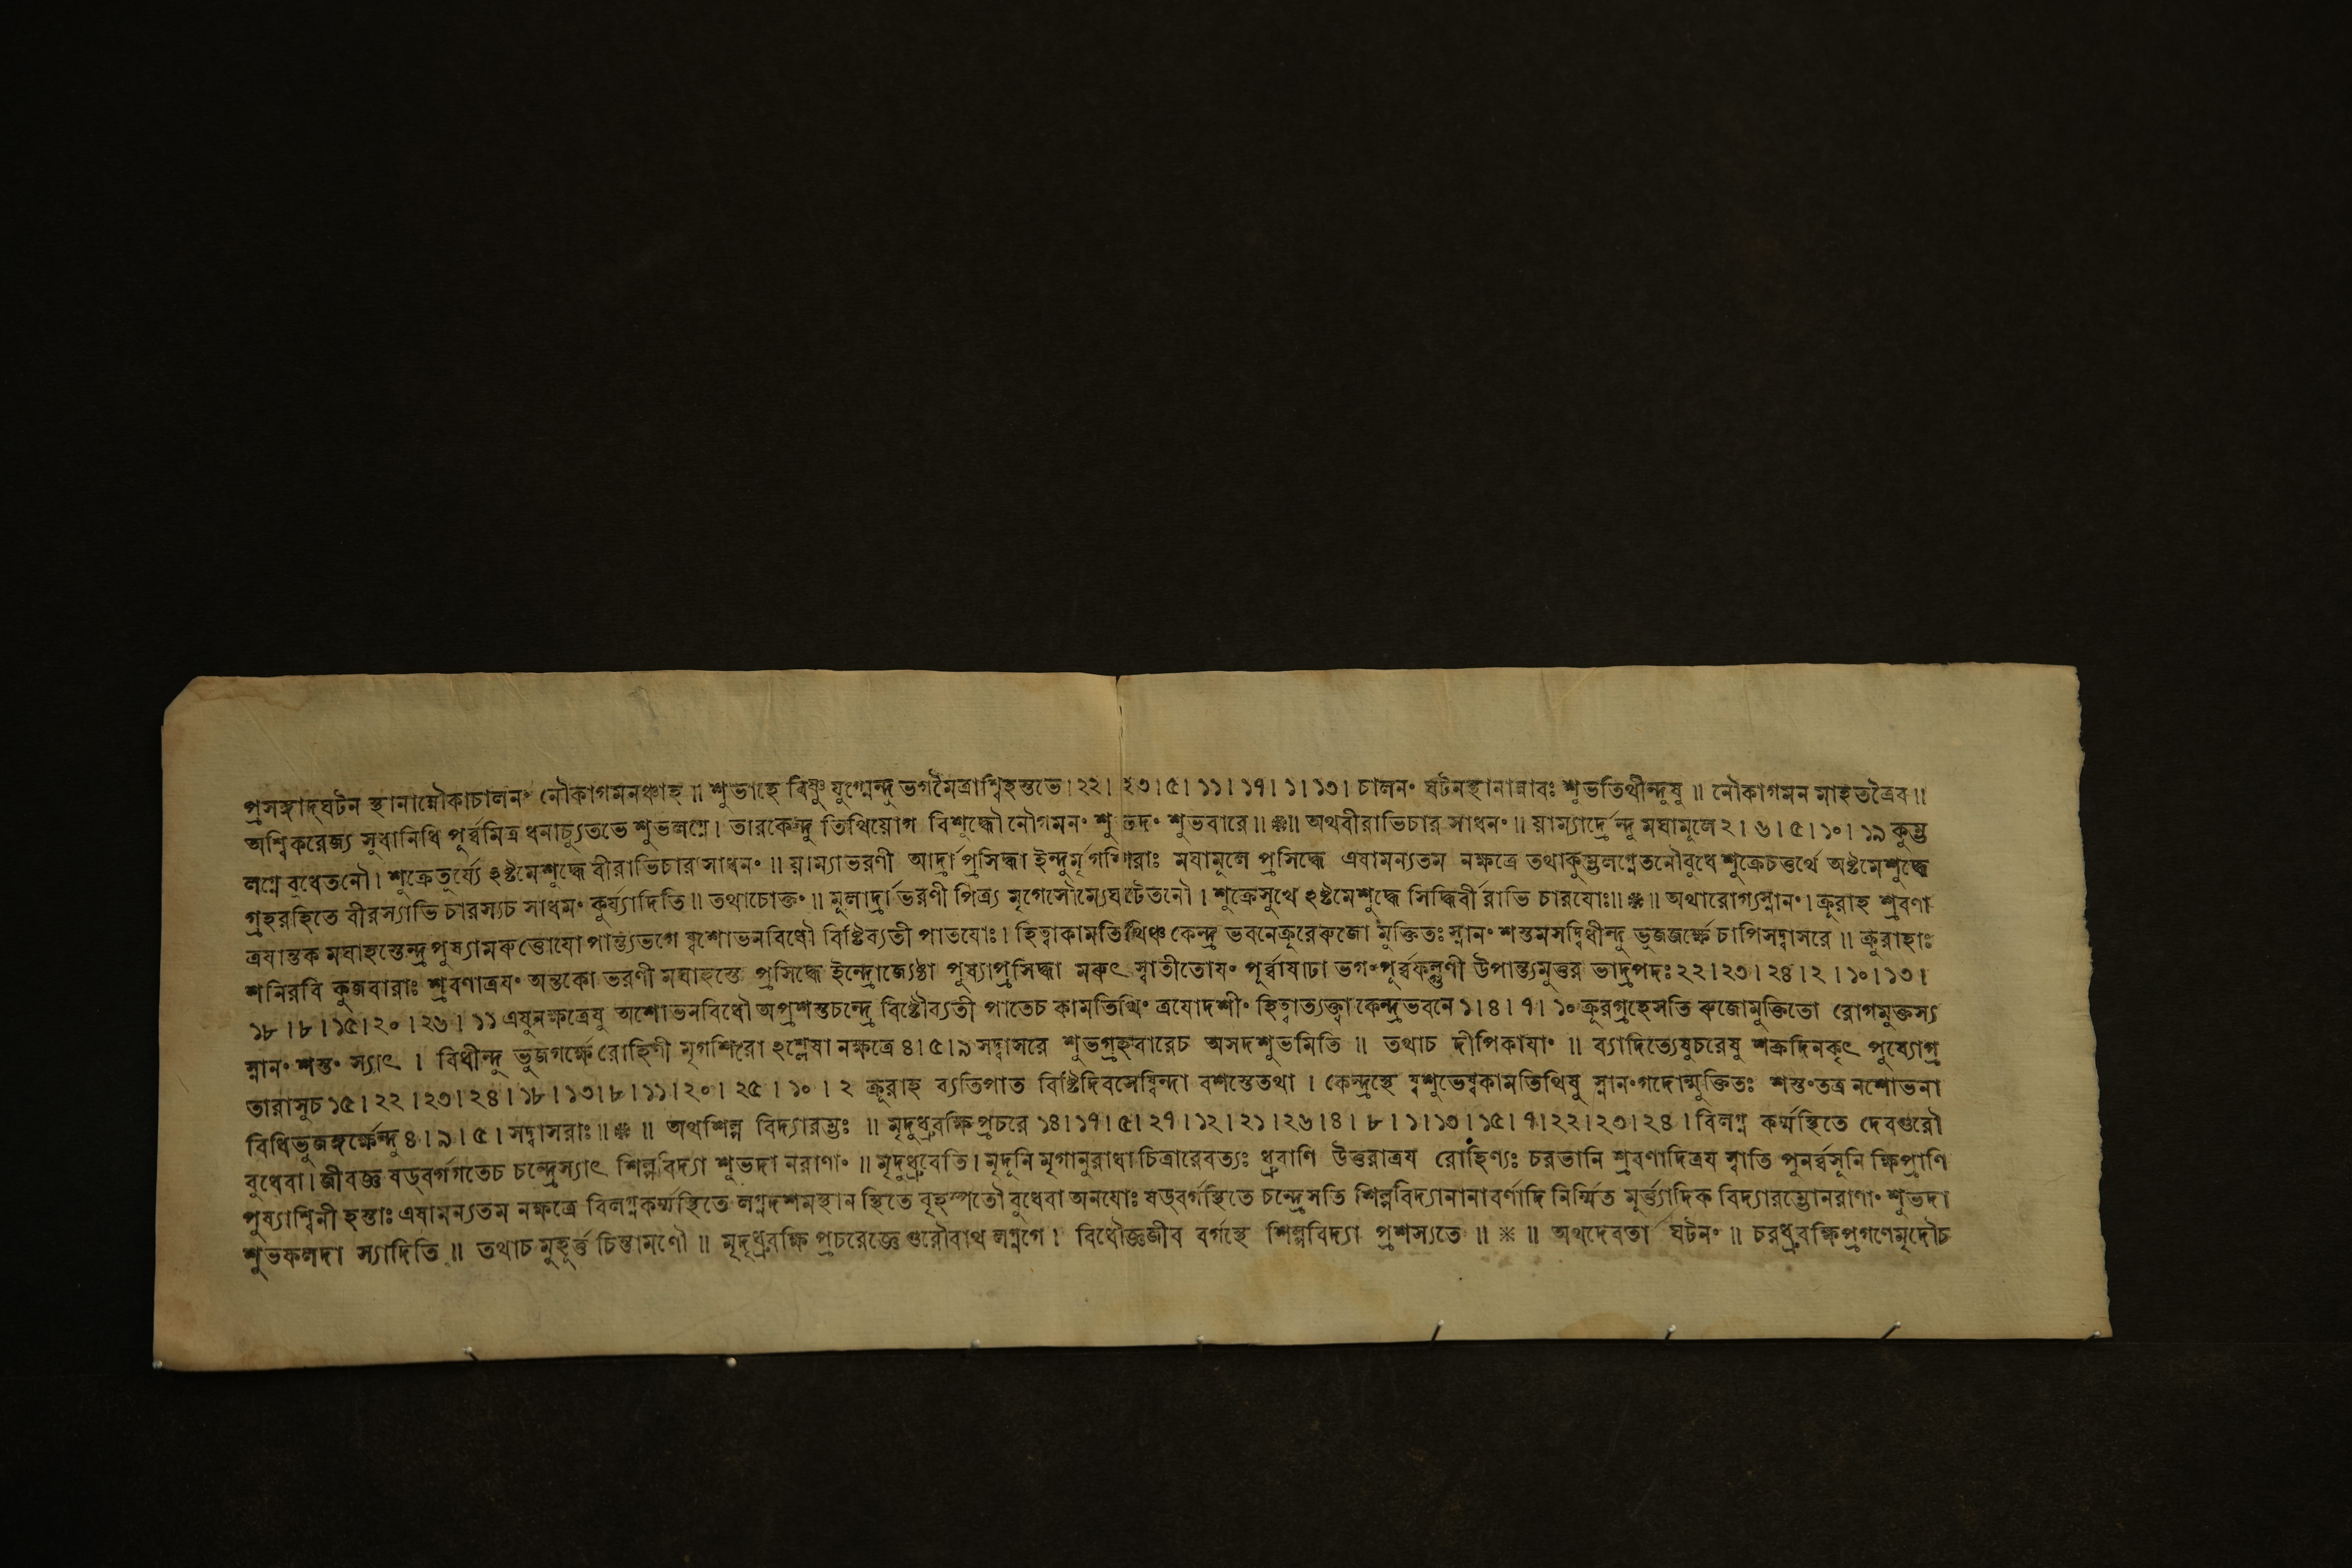 প্রসঙ্গাদ্ঘটন স্থানান্নৌকাচালনং নৌকাগমনঞ্চাহ ॥ শুভাহে বিষ্ণু যুগ্মেন্দু ভগমৈত্রাশ্বিহস্তভে । ২২ । ২৩ । ৫ । ১১ । ১৭ । ১ । ১৩ । চালনং ঘটনস্থানান্নাবঃ শুভতিথীন্দুষু ॥ নৌকাগমন মাহতত্রৈব ॥
অশ্বিকরেজ্য সুধানিধি পূর্ব্বমিত্র ধনাচ্যুতভে শুভলগ্নে । তারকেন্দু তিথিয়োগ বিশুদ্ধৌ নৌগমনং শুভদং শুভবারে ॥ ❋ ॥ অথবীরাভিচার সাধনং ॥ য়াম্যার্দ্রেন্দু মঘামূলে ২ । ৬ । ৫ । ১০ । ১৯ কুম্ভ
লগ্নে বুধেতনৌ । শুক্রেতুর্য্যে ঽষ্টমেশুদ্ধে বীরাভিচার সাধনং ॥ য়াম্যাভরণী আর্দ্রাপ্রসিদ্ধা ইন্দুর্মৃগশিরাঃ মঘামূলে প্রসিদ্ধে এষামন্যতম নক্ষত্রে তথাকুম্ভলগ্নেতনৌবুধে শুক্রেচতুর্থে অষ্টমেশুদ্ধে
গ্রহরহিতে বীরস্যাভি চারস্যচ সাধনং কুর্য্যাদিতি ॥ তথাচোক্তং ॥ মূলার্দ্রাভরণী পিত্র্য মৃগেসৌম্যেঘটেতনৌ । শুক্রেসুখে ঽষ্টমেশুদ্ধে সিদ্ধির্বীরাভি চারযোঃ ॥ ❋ ॥ অথারোগ্যস্নানং । ক্রূরাহ শ্রবণা
ত্রযান্তক মঘাহস্তেন্দ্র পুষ্যামরুত্তোযো পান্ত্যভগে ষ্বশোভনবিধৌ বিষ্টিব্যতী পাতযোঃ । হিত্বাকামতিথিঞ্চ কেন্দ্র ভবনেক্রূরেরুজো মুক্তিতঃ স্নানং শস্তমসদ্বিধীন্দু ভুজগর্ক্ষে চাপিসদ্বাসরে ॥ ক্রূরাহাঃ
শনিরবি কুজবারাঃ শ্রবণাত্রযং অন্তকো ভরণী মঘাহস্তে প্রসিদ্ধে ইন্দ্রোজ্যেষ্ঠা পুষ্যাপ্রসিদ্ধা মরুৎ স্বাতীতোযং পূর্ব্বাষাঢা ভগংপূর্ব্বফল্গুণী উপান্ত্যমুত্তর ভাদ্রপদঃ ২২ । ২৩ । ২৪ । ২ । ১০ । ১৩ ।
১৮ । ৮ । ১৫ । ২০ । ২৬ । ১১ এষুনক্ষত্রেষু অশোভনবিধৌ অপ্রশস্তচন্দ্রে বিষ্টৌব্যতী পাতেচ কামতিথিং ত্রযোদশীং হিত্বাত্যক্ত্বা কেন্দ্রভবনে ১ । ৪ । ৭ । ১০ ক্রূরগ্রহেসতি রুজোমুক্তিতো রোগমুক্তস্য
স্নানং শস্তং স্যাৎ । বিধীন্দু ভুজগর্ক্ষে রোহিণী মৃগশিরা ঽশ্লেষা নক্ষত্রে ৪ । ৫ । ৯ সদ্বাসরে শুভগ্রহবারেচ অসদশুভমিতি ॥ তথাচ দীপিকাযাং ॥ ব্যাদিত্যেষুচরেষু শক্রদিনকৃৎ পুষ্যোগ্র
তারাসুচ ১৫ । ২২ । ২৩ । ২৪ । ১৮ । ১৩ । ৮ । ১১ । ২০ । ২৫ । ১০ । ২ ক্রূরাহ ব্যতিপাত বিষ্টিদিবসেষ্বিন্দা বশস্তেতথা । কেন্দ্রস্থে ষ্বশুভেষ্বকামতিথিষু স্নানংগদোন্মুক্তিতঃ শস্তংতত্র নশোভনা
বিধিভুজঙ্গর্ক্ষেন্দু ৪ । ৯ । ৫ । সদ্বাসরাঃ ॥ ❋ ॥ অথশিল্প বিদ্যারম্ভঃ ॥ মৃদুধ্রুবক্ষিপ্রচরে ১৪ । ১৭ । ৫ । ২৭ । ১২ । ২১ । ২৬ । ৪ । ৮ । ১ । ১৩ । ১৫ । ৭ । ২২ । ২৩ । ২৪ । বিলগ্ন কর্ম্মস্থিতে দেবগুরৌ
বুধেবা । জীবজ্ঞ ষড্বর্গগতেচ চন্দ্রেস্যাৎ শিল্পবিদ্যা শুভদা নরাণাং ॥ মৃদুধ্রুবেতি । মৃদূনি মৃগানুরাধা চিত্রারেবত্যঃ ধ্রুবাণি উত্তরাত্রয রোহিণ্যঃ চরভানি শ্রবণাদিত্রয স্বাতি পুনর্ব্বসূনি ক্ষিপ্রাণি
পুষ্যাশ্বিনী হস্তাঃ এষামন্যতম নক্ষত্রে বিলগ্নকর্ম্মস্থিতে লগ্নদশমস্থান স্থিতে বৃহস্পতৌ বুধেবা অনযোঃ ষড্বর্গস্থিতে চন্দ্রেসতি শিল্পবিদ্যানানাবর্ণাদি নির্ম্মিত মূর্ত্ত্যাদিক বিদ্যারম্ভোনরাণাং শুভদা
শুভফলদা স্যাদিতি ॥ তথাচ মুহূর্ত্ত চিন্তামণৌ ॥ মৃদুধ্রুবক্ষি প্রচরেজ্ঞে গুরৌবাথ লগ্নগে । বিধৌজ্ঞজীব বর্গস্থে শিল্পবিদ্যা প্রশস্যতে ॥ ❋ ॥ অথদেবতা ঘটনং ॥ চরধ্রুবক্ষিপ্রগণেমৃদৌচ